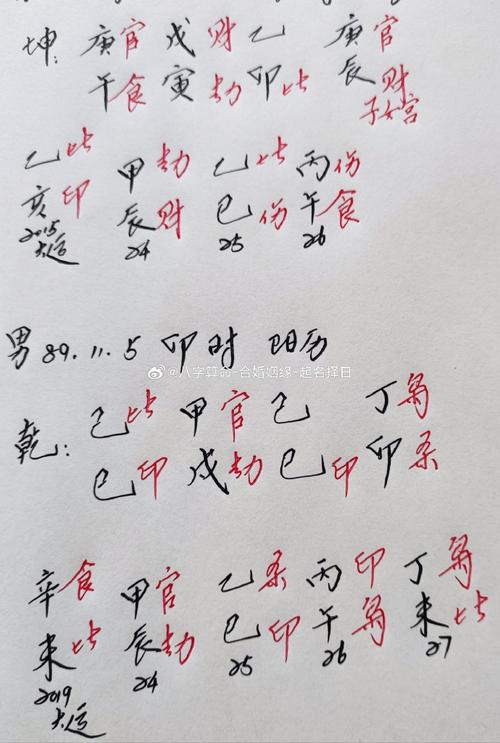 坤: 庚官 戊财 乙 庚官
午食 寅劫 卯比 辰财
子女宫
乙比 甲劫 乙比 丙伤
亥印 辰财 巳伤 午食
2015 24 25 26
大运
男 89.11.5 卯时 阳历
@八字算命-合婚姻缘-起名择日
乾: 己比 甲官 己 丁枭
巳印 戌劫 巳印 卯杀
辛食 甲官 乙杀 丙印 丁枭
未比 辰劫 巳印 午枭 未比
2019 24 25 26 27
大运